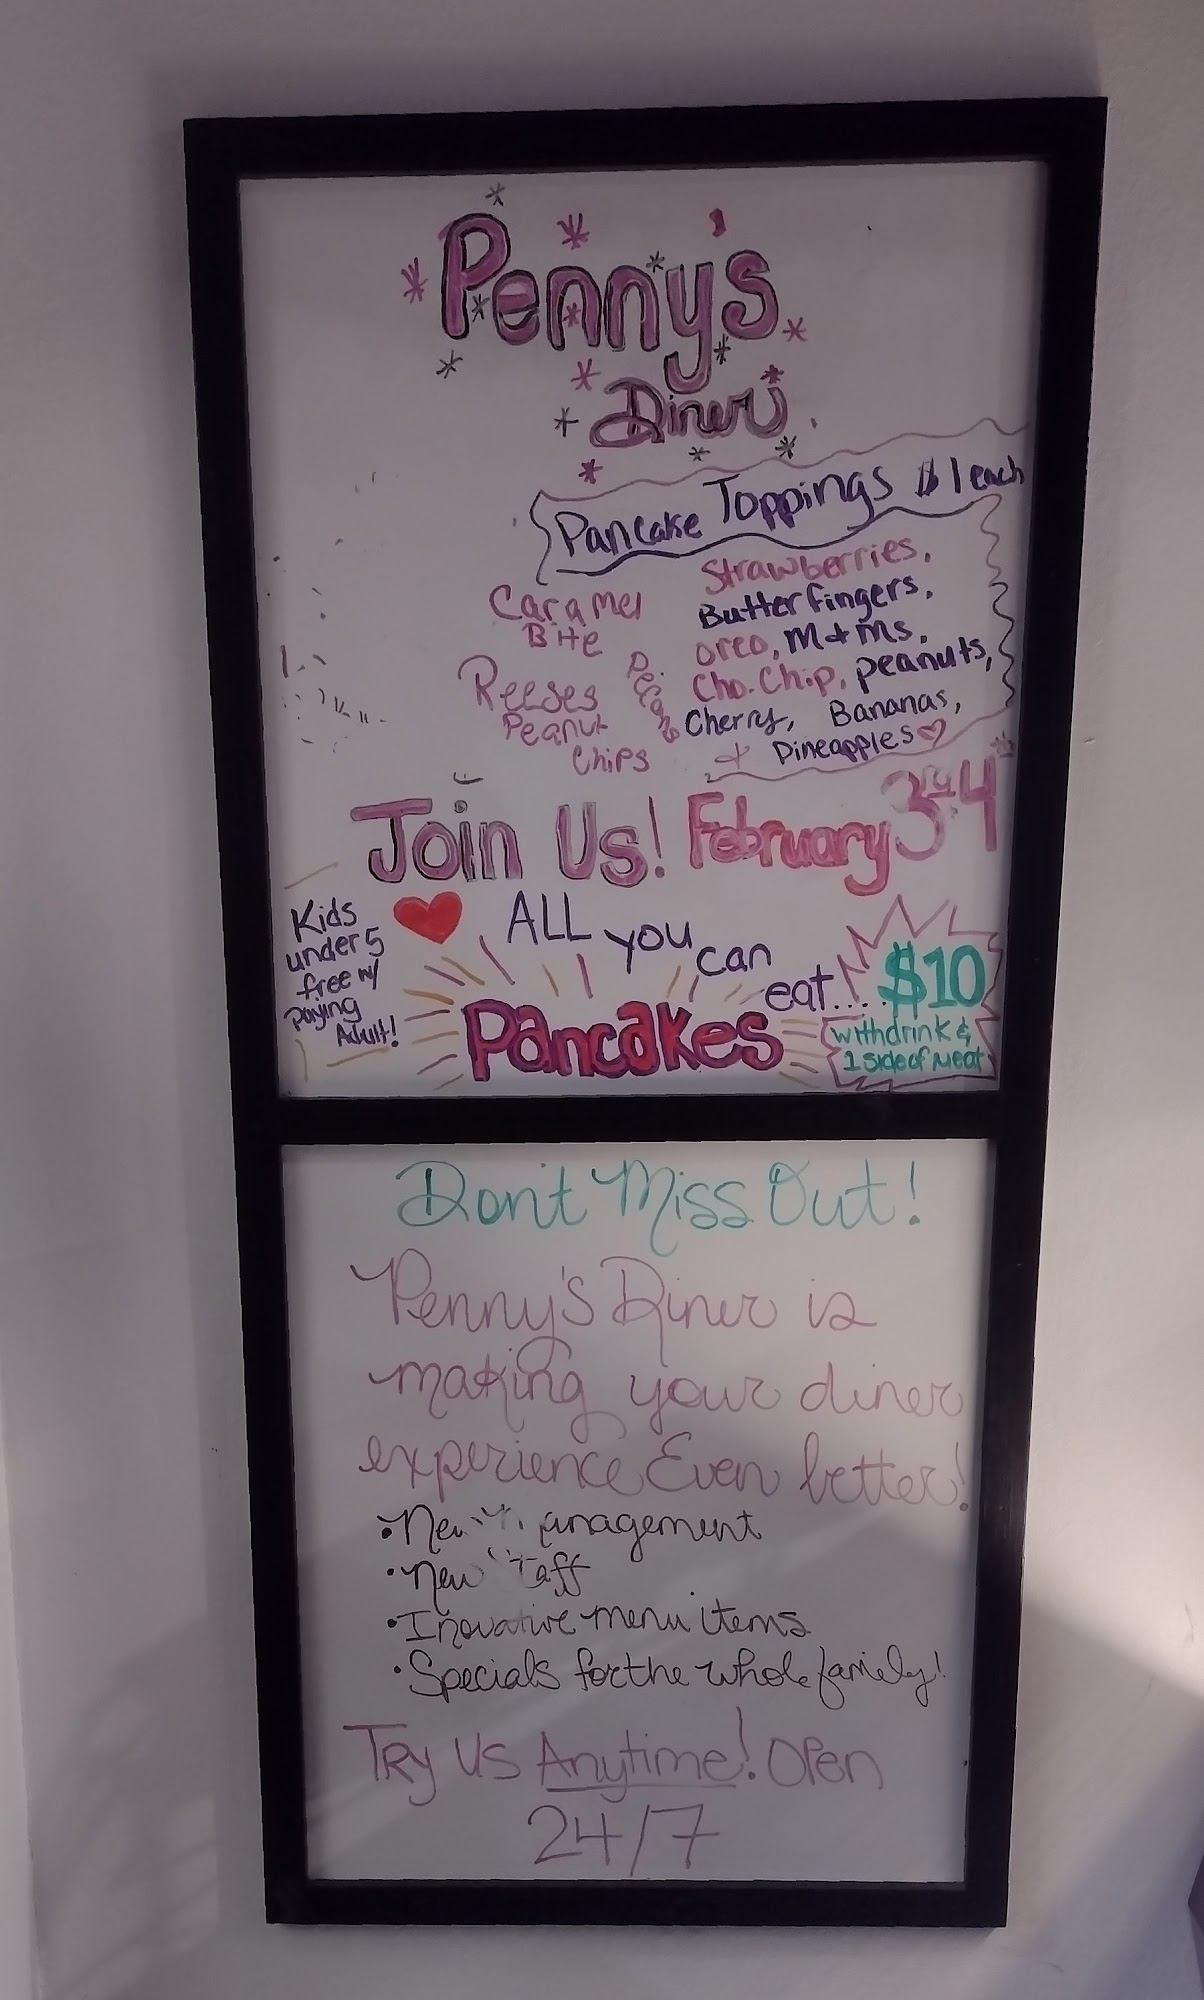 Penny's
Diner
Pancake Toppings $1 each
Strawberries,
Butterfingers,
oreo, M+Ms,
Cho. Chip, peanuts,
Cherry, Bananas,
+ Pineapples
Caramel
Bite
Reeses
Peanut
Chips
Pecans
Join Us! February 3rd 4th
Kids
under 5
free w/
Paying
Adult!
ALL you can eat....
Pancakes
$10
with drink &
1 side of Meat
Don't Miss Out!
Penny's Diner is
making your diner
experience Even better!
• New Management
• New Staff
• Inovative menu items
• Specials for the whole family!
Try us Anytime! Open
24/7